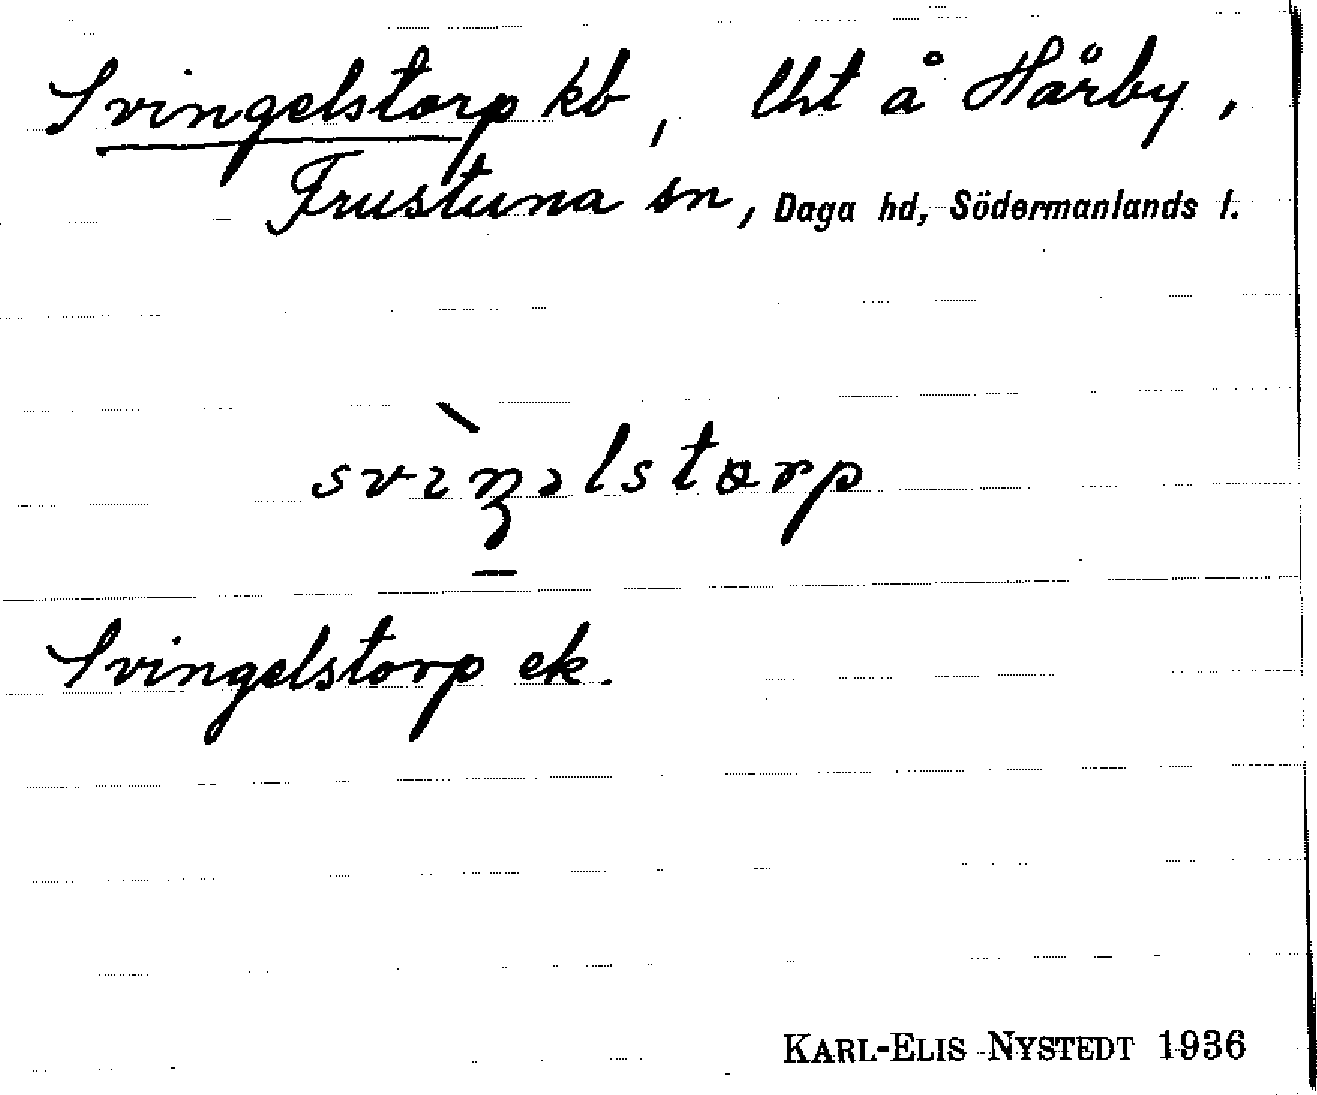 Svingelstorp kb, lht å Hårby,
Frustuna sn, Daga hd, Södermanlands l.
svìŋəlstɷrp
Svingelstorp ek.
KARL-ELIS NYSTEDT 1936